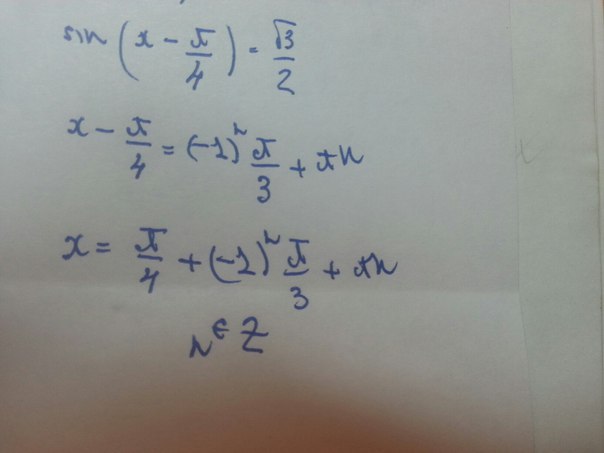 sin (x - π/4) = √3/2
x - π/4 = (-1)^n π/3 + πn
x = π/4 + (-1)^n π/3 + πn
n ∈ Z